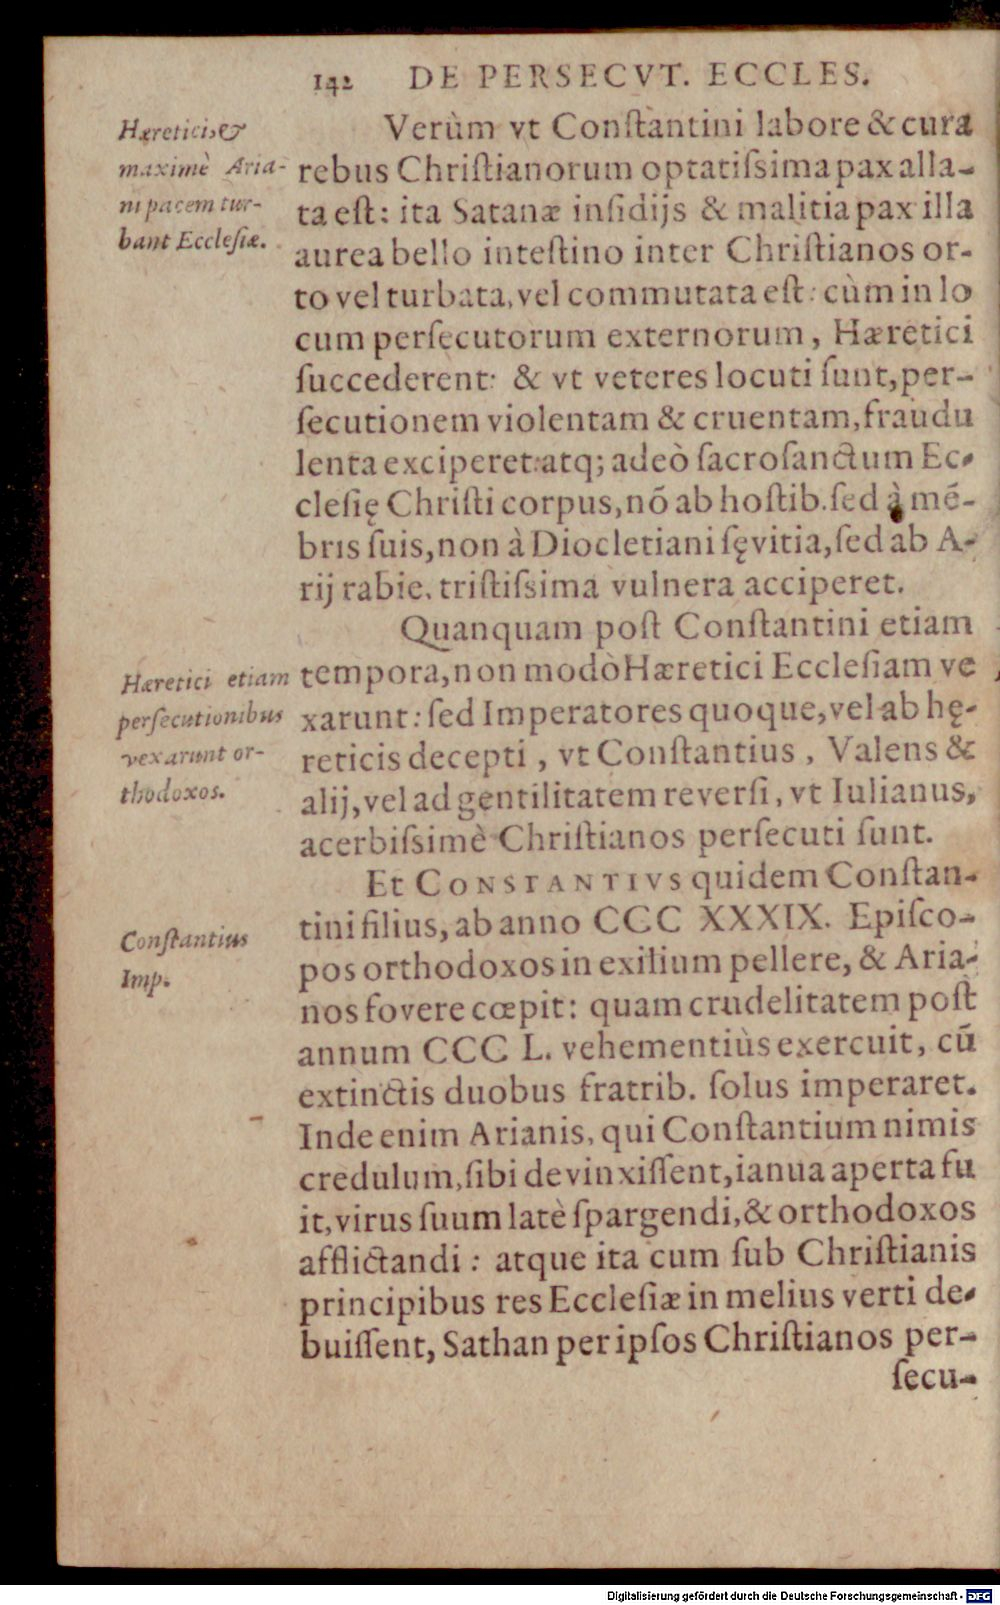 142 DE PERSECVT. ECCLES.
Hæretici, &
maximè Aria-
ni pacem tur-
bant Ecclesiæ.
Verùm vt Constantini labore & cura
rebus Christianorum optatissima pax alla-
ta est: ita Satanæ insidijs & malitia pax illa
aurea bello intestino inter Christianos or-
to vel turbata, vel commutata est: cùm in lo
cum persecutorum externorum, Hæretici
succederent: & vt veteres locuti sunt, per-
secutionem violentam & cruentam, fraudu
lenta exciperet: atq; adeò sacrosanctum Ec-
clesię Christi corpus, nō ab hostib. sed à mē-
bris suis, non à Diocletiani sęvitia, sed ab A-
rij rabie, tristissima vulnera acciperet.
Hæretici etiam
persecutionibus
vexarunt or-
thodoxos.
Quanquam post Constantini etiam
tempora, non modò Hæretici Ecclesiam ve
xarunt: sed Imperatores quoque, vel ab hę-
reticis decepti, vt Constantius, Valens &
alij, vel ad gentilitatem reversi, vt Iulianus,
acerbissimè Christianos persecuti sunt.
Constantius
Imp.
Et CONSTANTIVS quidem Constan-
tini filius, ab anno CCC XXXIX. Episco-
pos orthodoxos in exilium pellere, & Aria-
nos fovere cœpit: quam crudelitatem post
annum CCC L. vehementiùs exercuit, cū
extinctis duobus fratrib. solus imperaret.
Inde enim Arianis, qui Constantium nimis
credulum, sibi devinxissent, ianua aperta fu
it, virus suum latè spargendi, & orthodoxos
afflictandi: atque ita cum sub Christianis
principibus res Ecclesiæ in melius verti de-
buissent, Sathan per ipsos Christianos per-
secu-
Digitalisierung gefördert durch die Deutsche Forschungsgemeinschaft - DFG